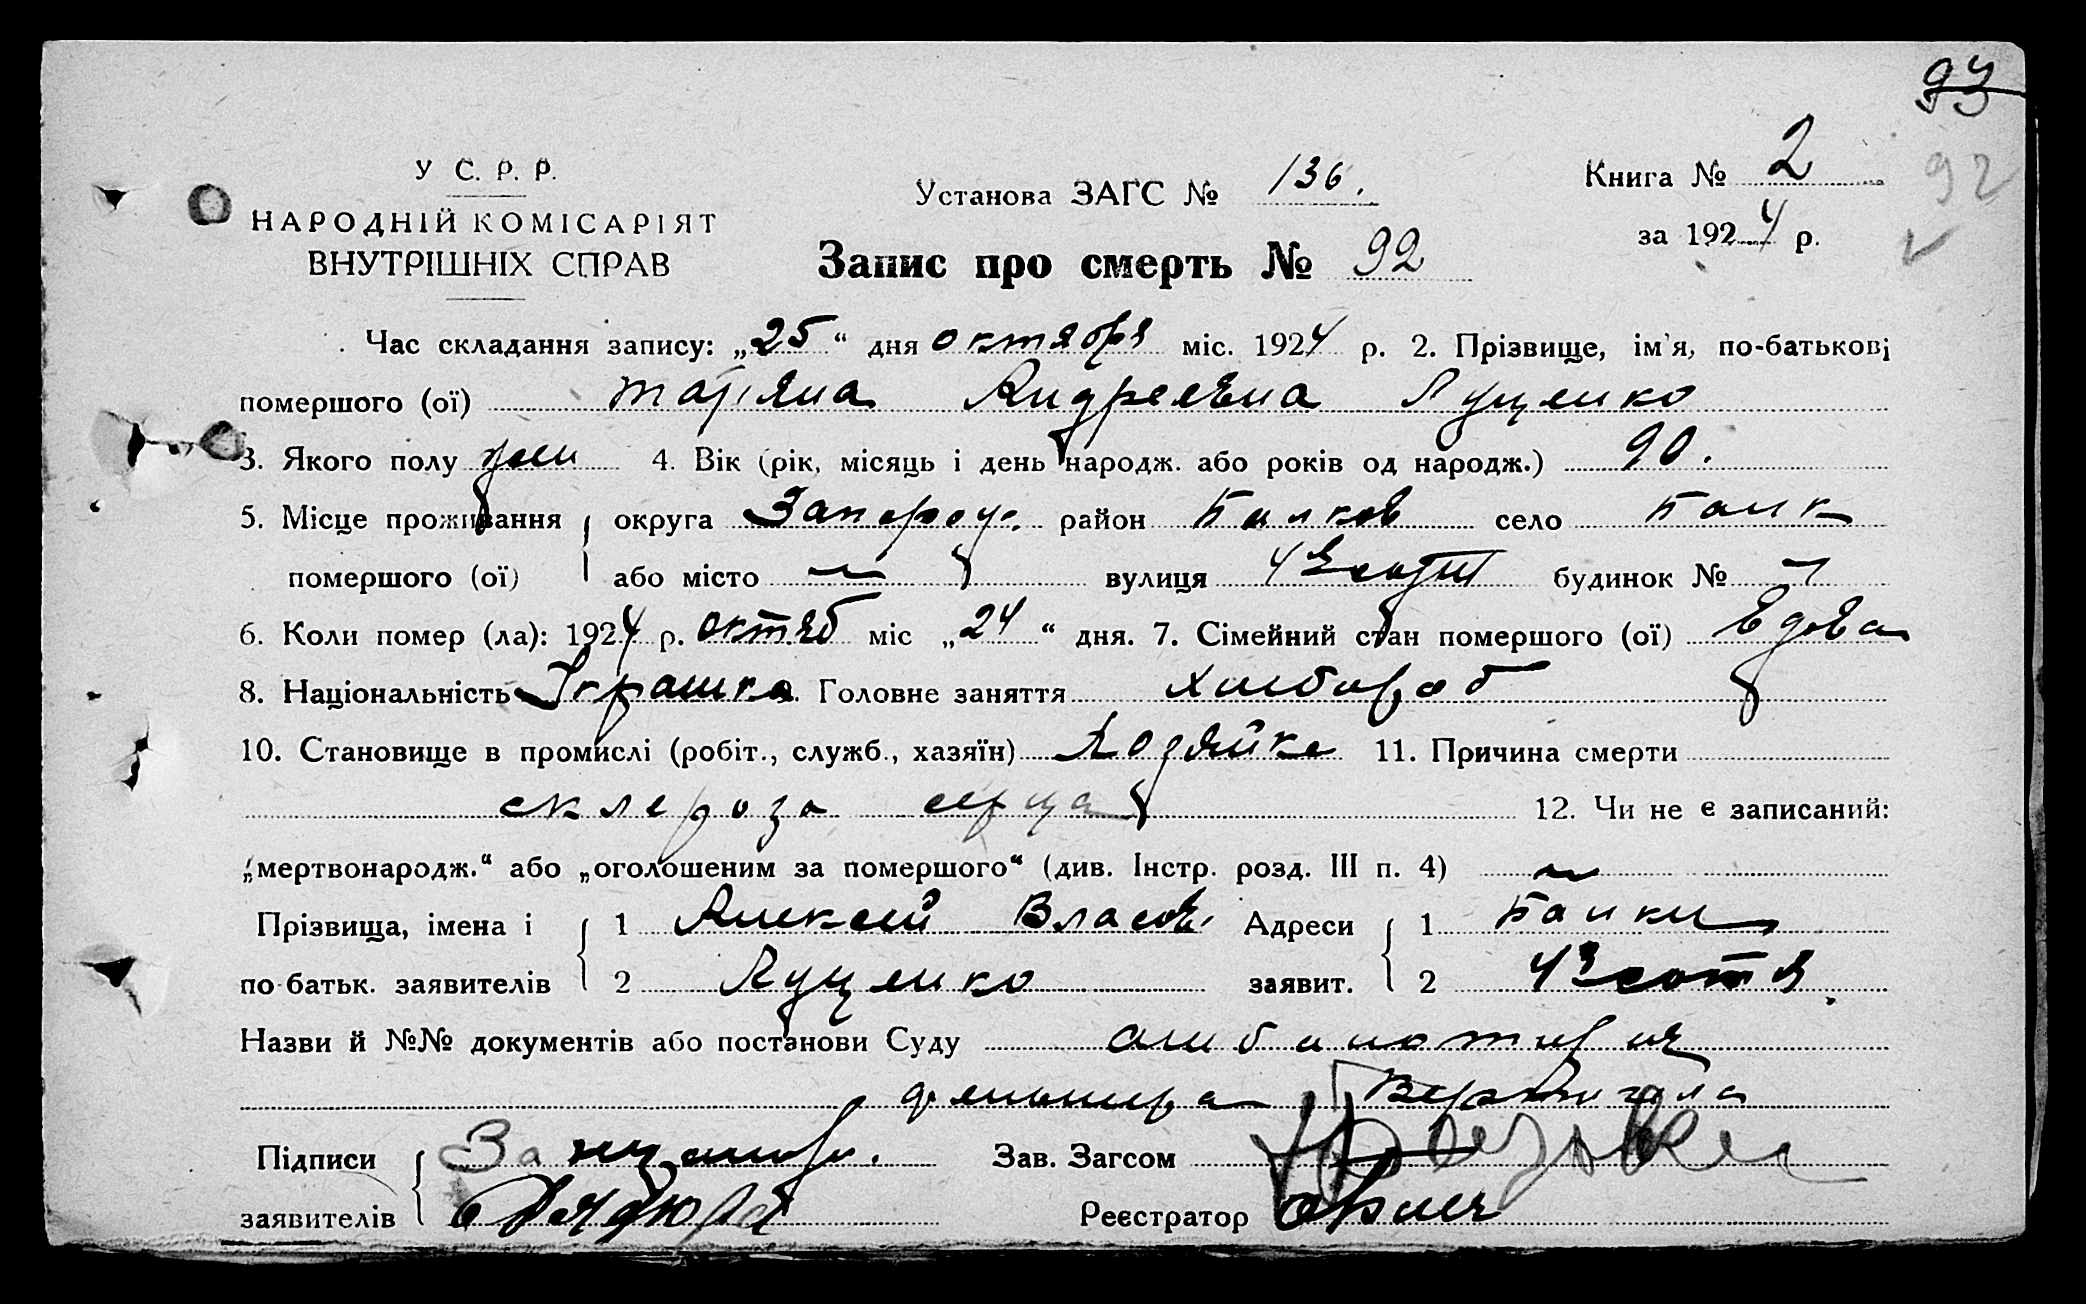 93
92
У С. Р. Р.
НАРОДНІЙ КОМІСАРІЯТ
ВНУТРІШНІХ СПРАВ
Установа ЗАГС № 136.
Книга № 2
за 1924 р.
Запис про смерть № 92
Час складання запису: „25“ дня октября міс. 1924 р. 2. Прізвище, ім'я, по-батькові
помершого (ої) Андреевна Луценко
3. Якого полу жен 4. Вік (рік, місяць і день народж. або років од народж.) 90.
5. Місце проживання округа Запорож. район Балков село Балк
помершого (ої) або місто — вулиця 4 Я сотня будинок № —
6. Коли помер (ла): 1924 р. октяб міс „24“ дня. 7. Сімейний стан помершого (ої) вдова
8. Національність Украинка Головне заняття хлебороб
10. Становище в промислі (робіт., служб., хазяїн) Хозяйка 11. Причина смерти
склероза серца 12. Чи не є записаний:
„мертвонародж.“ або „оголошеним за помершого“ (див. Інстр. розд. III п. 4) —
Прізвища, імена і 1 Алексей Власов Адреси 1 Балки
по-батьк. заявителів 2 Луценко заявит. 2 4 Я сотня
Назви й №№ документів або постанови Суду амбулатория
фельшера
Підписи За Зав. Загсом
заявителів Реєстратор